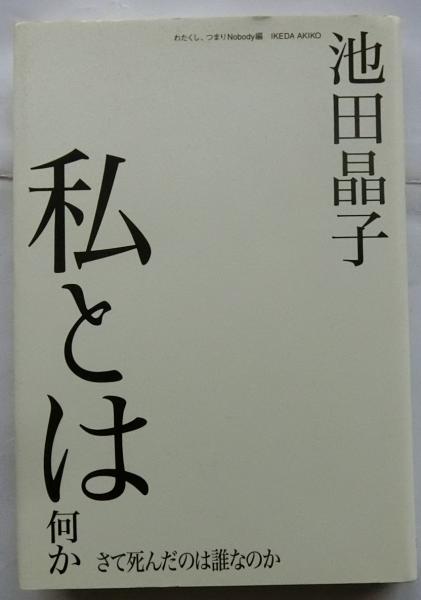 わたくし、つまりNobody編 IKEDA AKIKO
池田晶子
私とは
何か
さて死んだのは誰なのか